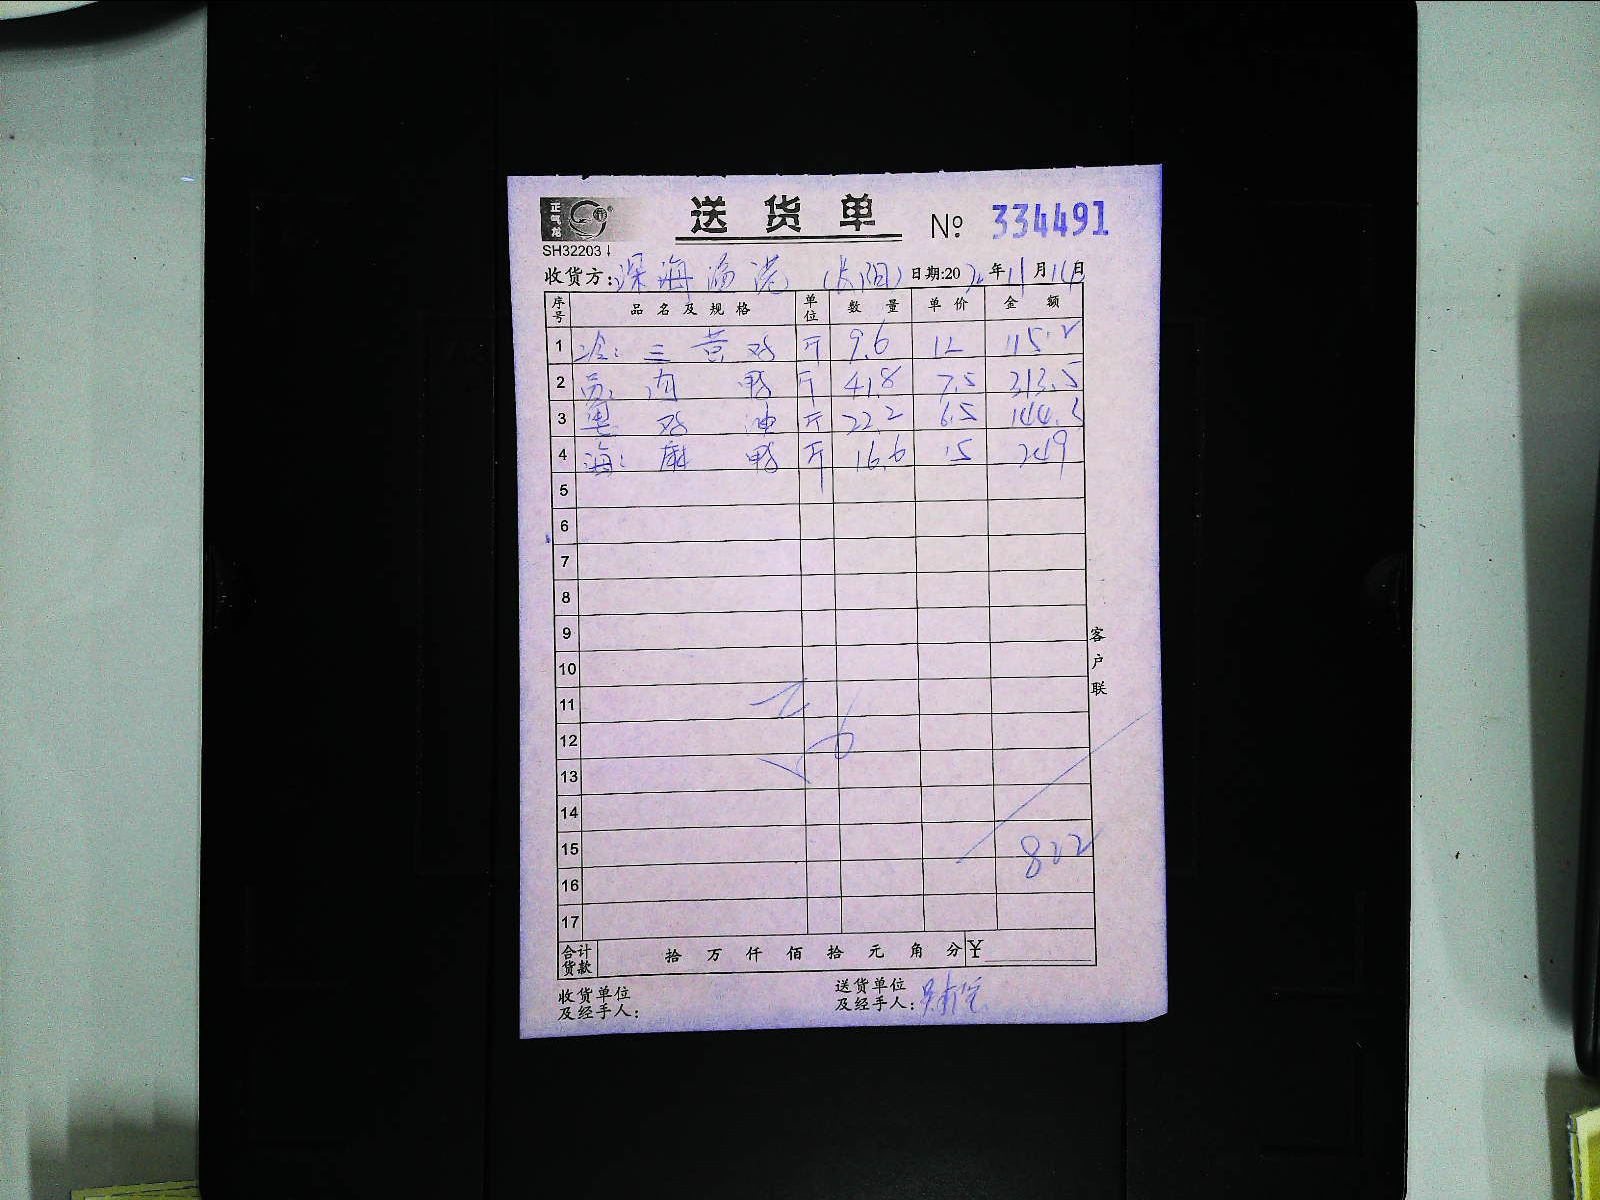 正气龙
送货单 № 334491
SH32203
收货方:深海渔港(长阳) 日期:20 年11月16日
序号 品名及规格 单位 数量 单价 金额
1 冷: 三黄鸡 斤 9.6 12 115.2
2 肉鸭 斤 41.8 7.5 313.5
3 粤 鸡油 斤 22.2 6.5 144.3
4 海: 麻鸭 斤 16.6 15 249
5
6
7
8
9
10
11
12
13
14
15 822
16
17
客户联
合计货款 拾 万 仟 佰 拾 元 角 分 ¥
收货单位及经手人:
送货单位及经手人: